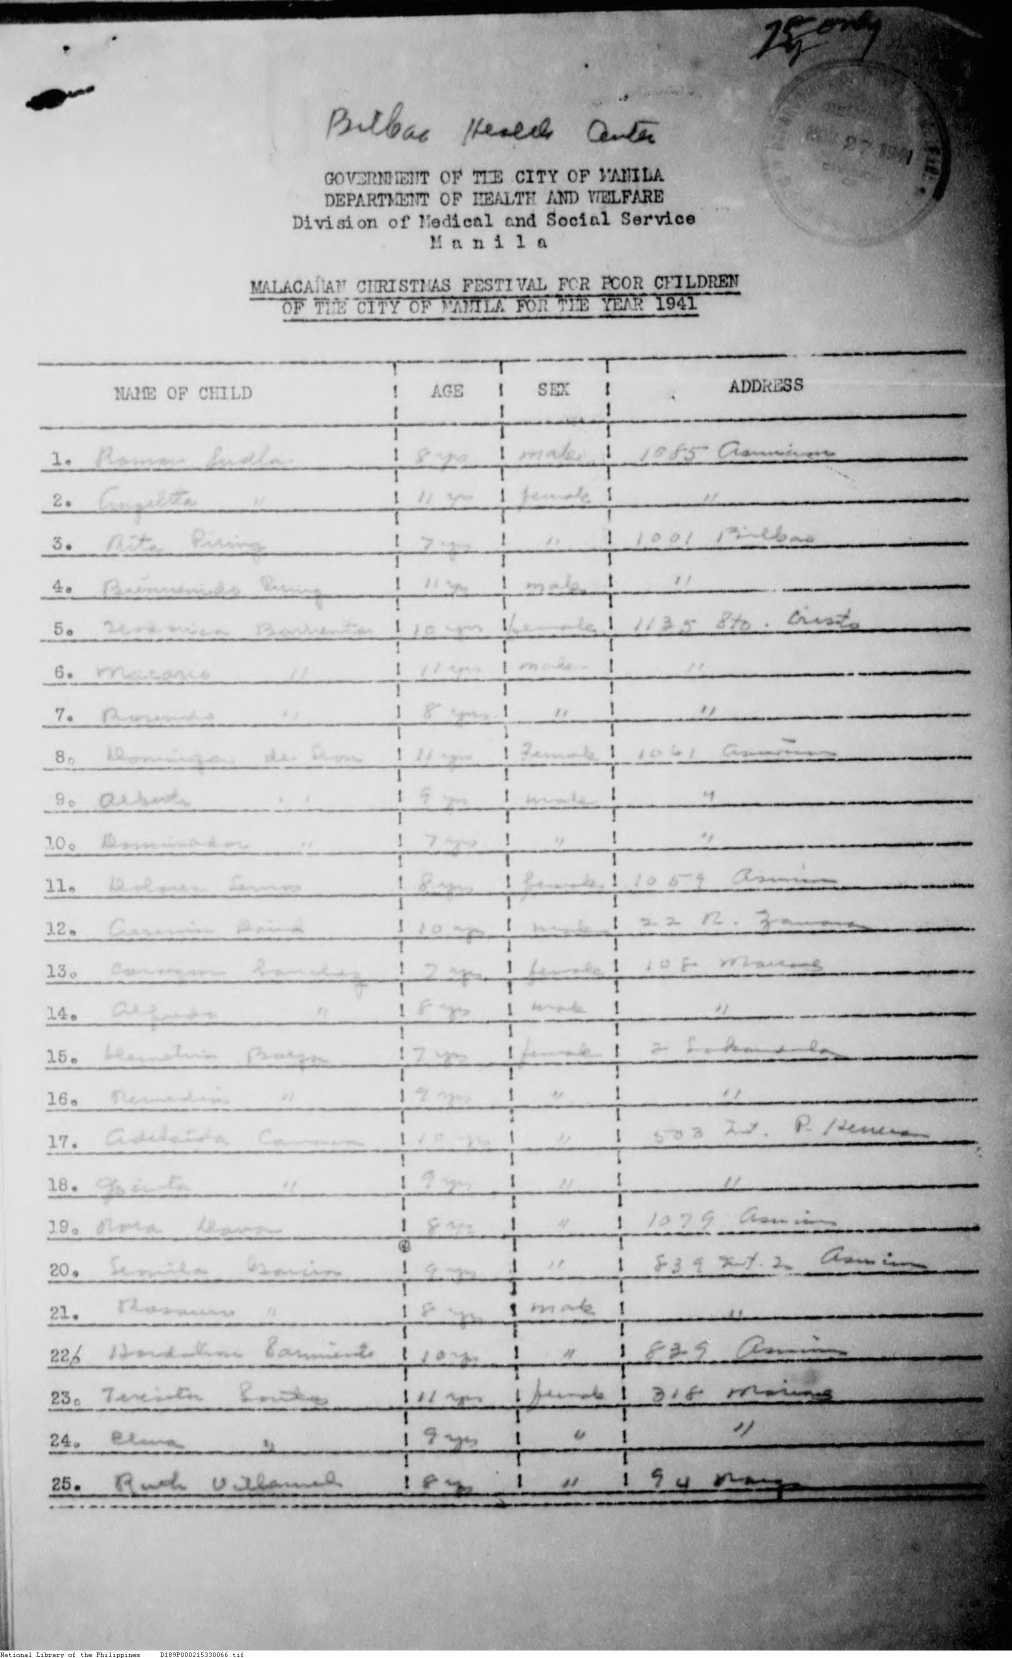 25 only
NOV 27 1941
Bilbao Health Center
GOVERNMENT OF THE CITY OF MANILA
DEPARTMENT OF HEALTH AND WELFARE
Division of Medical and Social Service
M a n i l a
MALACAÑAN CHRISTMAS FESTIVAL FOR POOR CHILDREN
OF THE CITY OF MANILA FOR THE YEAR 1941
NAME OF CHILD AGE SEX ADDRESS
1. Roman 8 yrs male 1085 Asuncion
2. " 11 yrs female "
3. Rita Pising 7 yrs " 1001 Bilbao
4. Bienvenido Pising 11 yrs male "
5. Barrientos 10 yrs female 1135 Sto. Cristo
6. Macario " 11 yrs male "
7. Rosendo " 8 yrs " "
8. Dominga de Leon 11 yrs Female 1061 Asuncion
9. Alberto " " 9 yrs male "
10. Dominador " 7 yrs " "
11. Dolores 8 yrs female 1059 Asuncion
12. David 10 yrs male 22 N. Zamora
13. Corazon Sanchez 7 yrs female 108
14. Alfredo " 8 yrs male "
15. Demetria 7 yrs female 2 Lakandola
16. Remedios " 9 yrs " "
17. Adelaida 10 yrs " 503 Int. P. Herrera
18. " 9 yrs " "
19. Nora 8 yrs " 1079 Asuncion
20. Garcia 9 yrs " 839 Int. 2 Asuncion
21. " 8 yrs male "
22. Sarmiento 10 yrs " 839 Asuncion
23. Teresita Santos 11 yrs female 318
24. Elena " 9 yrs " "
25. Ruth Villanueva 8 yrs " 94
National Library of the Philippines D189P000215330066.tif